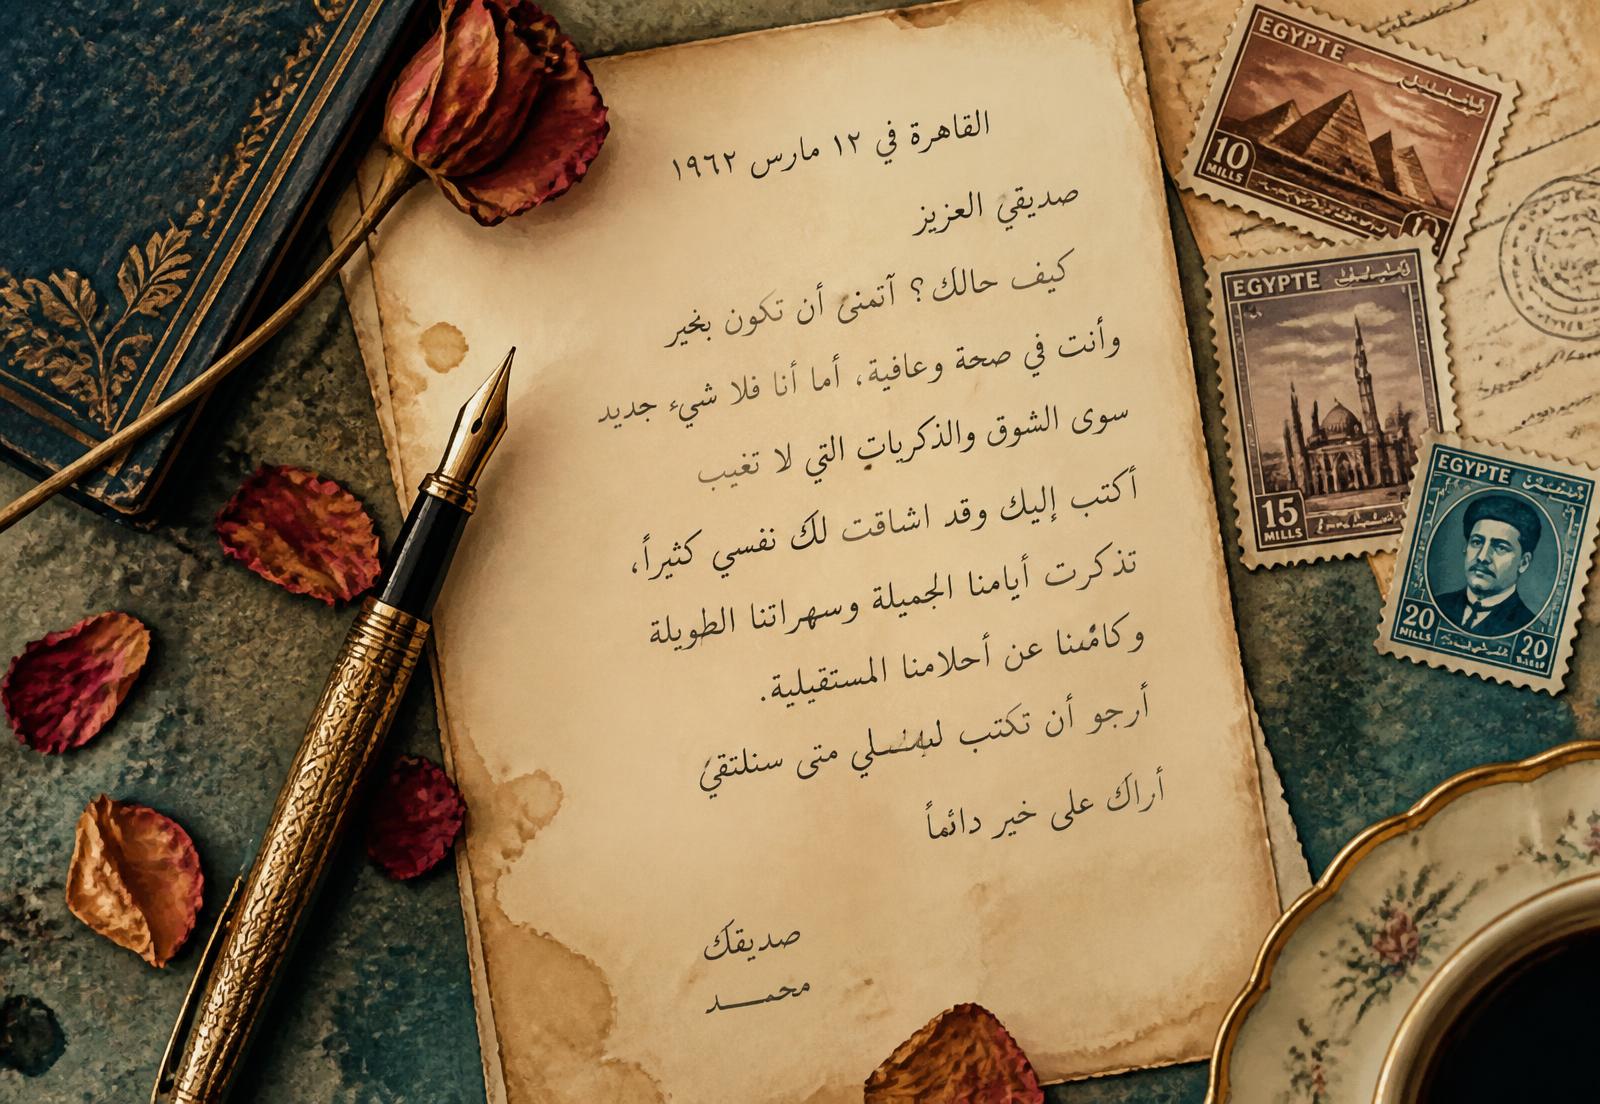 القاهرة في ١٢ مارس ١٩٦٢
صديقي العزيز
كيف حالك؟ آتمنى أن تكون بخير
وأنت في صحة وعافية، أما أنا فلا شيء جديد
سوى الشوق والذكريات التي لا تغيب
أكتب إليك وقد اشاقت لك نفسي كثيراً،
تذكرت أيامنا الجميلة وسهراتنا الطويلة
عن أحلامنا المستقيلية.
أرجو أن تكتب متى سنلتقي
أراك على خير دائماً
صديقك
محمد
EGYPTE
10
MILLS
EGYPTE
15
MILLS
EGYPTE
20
MILLS
20